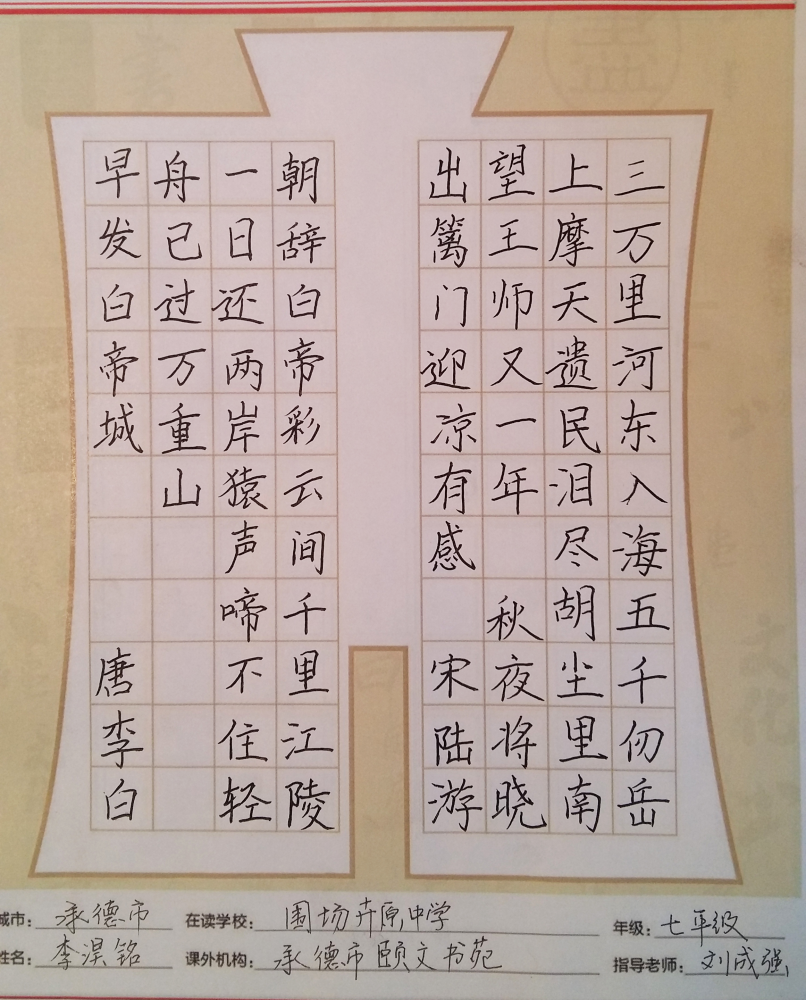 三万里河东入海五千仞岳
上摩天遗民泪尽胡尘里南
望王师又一年 秋夜将晓
出篱门迎凉有感 宋陆游
朝辞白帝彩云间千里江陵
一日还两岸猿声啼不住轻
舟已过万重山
早发白帝城 唐李白
城市: 承德市 在读学校: 围场卉原中学 年级: 七年级
姓名: 李淏铭 课外机构: 承德市颐文书苑 指导老师: 刘成强